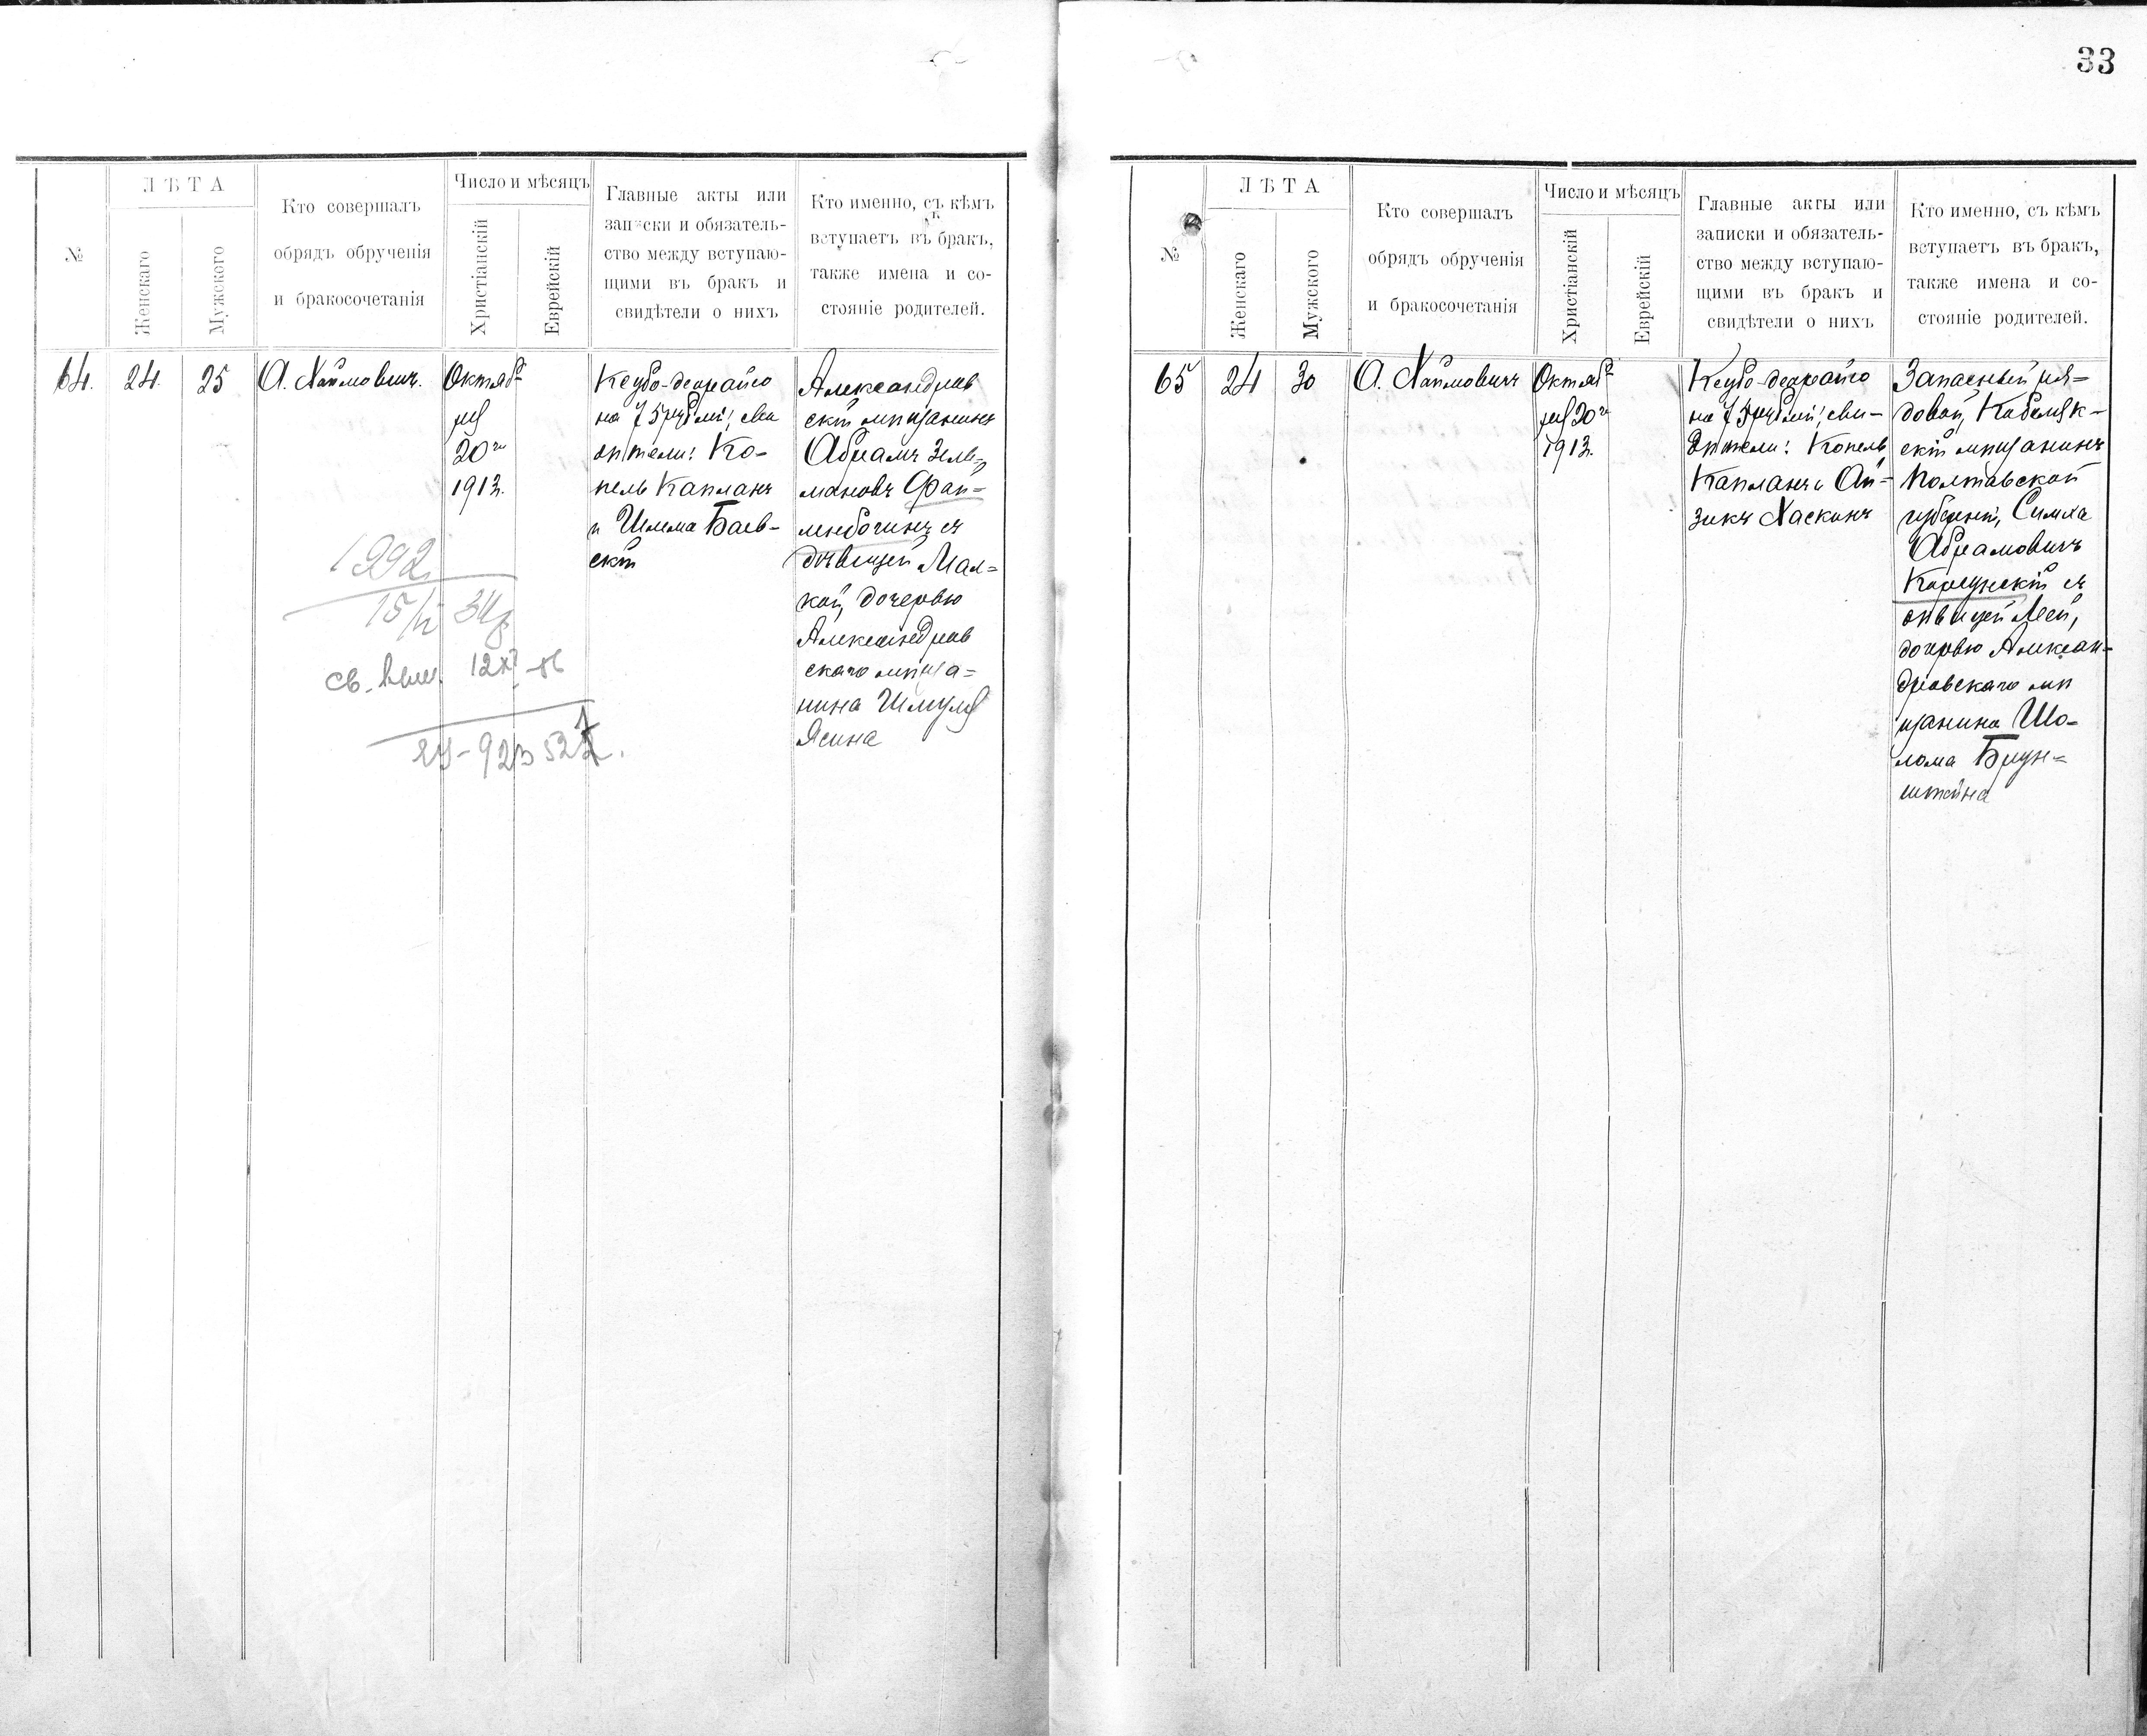 33
№
ЛѢТА
Женскаго
Мужскаго
Кто совершалъ
обрядъ обрученія
и бракосочетанія
Число и мѣсяцъ
Христіанскій
Еврейскій
Главные акты или
записки и обязатель-
ство между вступаю-
щими въ бракъ и
свидѣтели о нихъ
Кто именно, съ кѣмъ
вступаетъ въ бракъ,
также имена и со-
стояніе родителей.
64.
24.
25
А. Хаймовичъ.
Октяб-
ря
20го
1913г.
Кеубо-деорайсо
на 75 рублей, сви
дѣтели: Ко-
пель Капланъ
и Шлема Баев-
скій
Александров
скій мѣщанинъ
Абрамъ Зель-
мановъ
съ
дѣвицей Мал-
кой, дочерью
Александров
скаго мѣща-
нина Шмуля
Ясина
1992
15/IV
св. выд.
523
№
ЛѢТА
Женскаго
Мужского
Кто совершалъ
обрядъ обрученія
и бракосочетанія
Число и мѣсяцъ
Христіанскій
Еврейскій
Главные акты или
записки и обязатель-
ство между вступаю-
щими въ бракъ и
свидѣтели о нихъ
Кто именно, съ кѣмъ
вступаетъ въ бракъ,
также имена и со-
стояніе родителей.
65
24
30
А. Хаймовичъ
Октяб-
ря 20го
1913г.
Кеубо-деорайсо
на 75 рублей, сви-
дѣтели: Копель
Капланъ и Ай-
зикъ Хаскинъ
Запасный ря-
довой, Кобеляк-
скій мѣщанинъ
Полтавской
губерніи, Симха
Абрамовичъ
Корсунскій съ
дѣвицей Леей,
дочерью Алексан-
дровскаго мѣ
щанина Шо-
лома Брун-
штейна